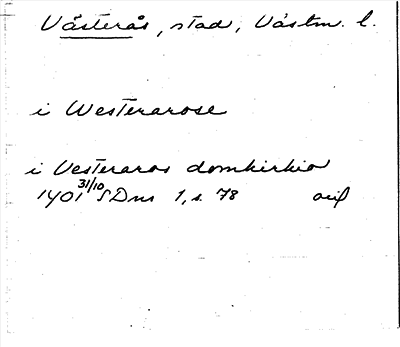 Västerås, stad, Västm. l.
i Westerarose
i Vesteraros domkirkio
1401 31/10 SDns 1, s. 78